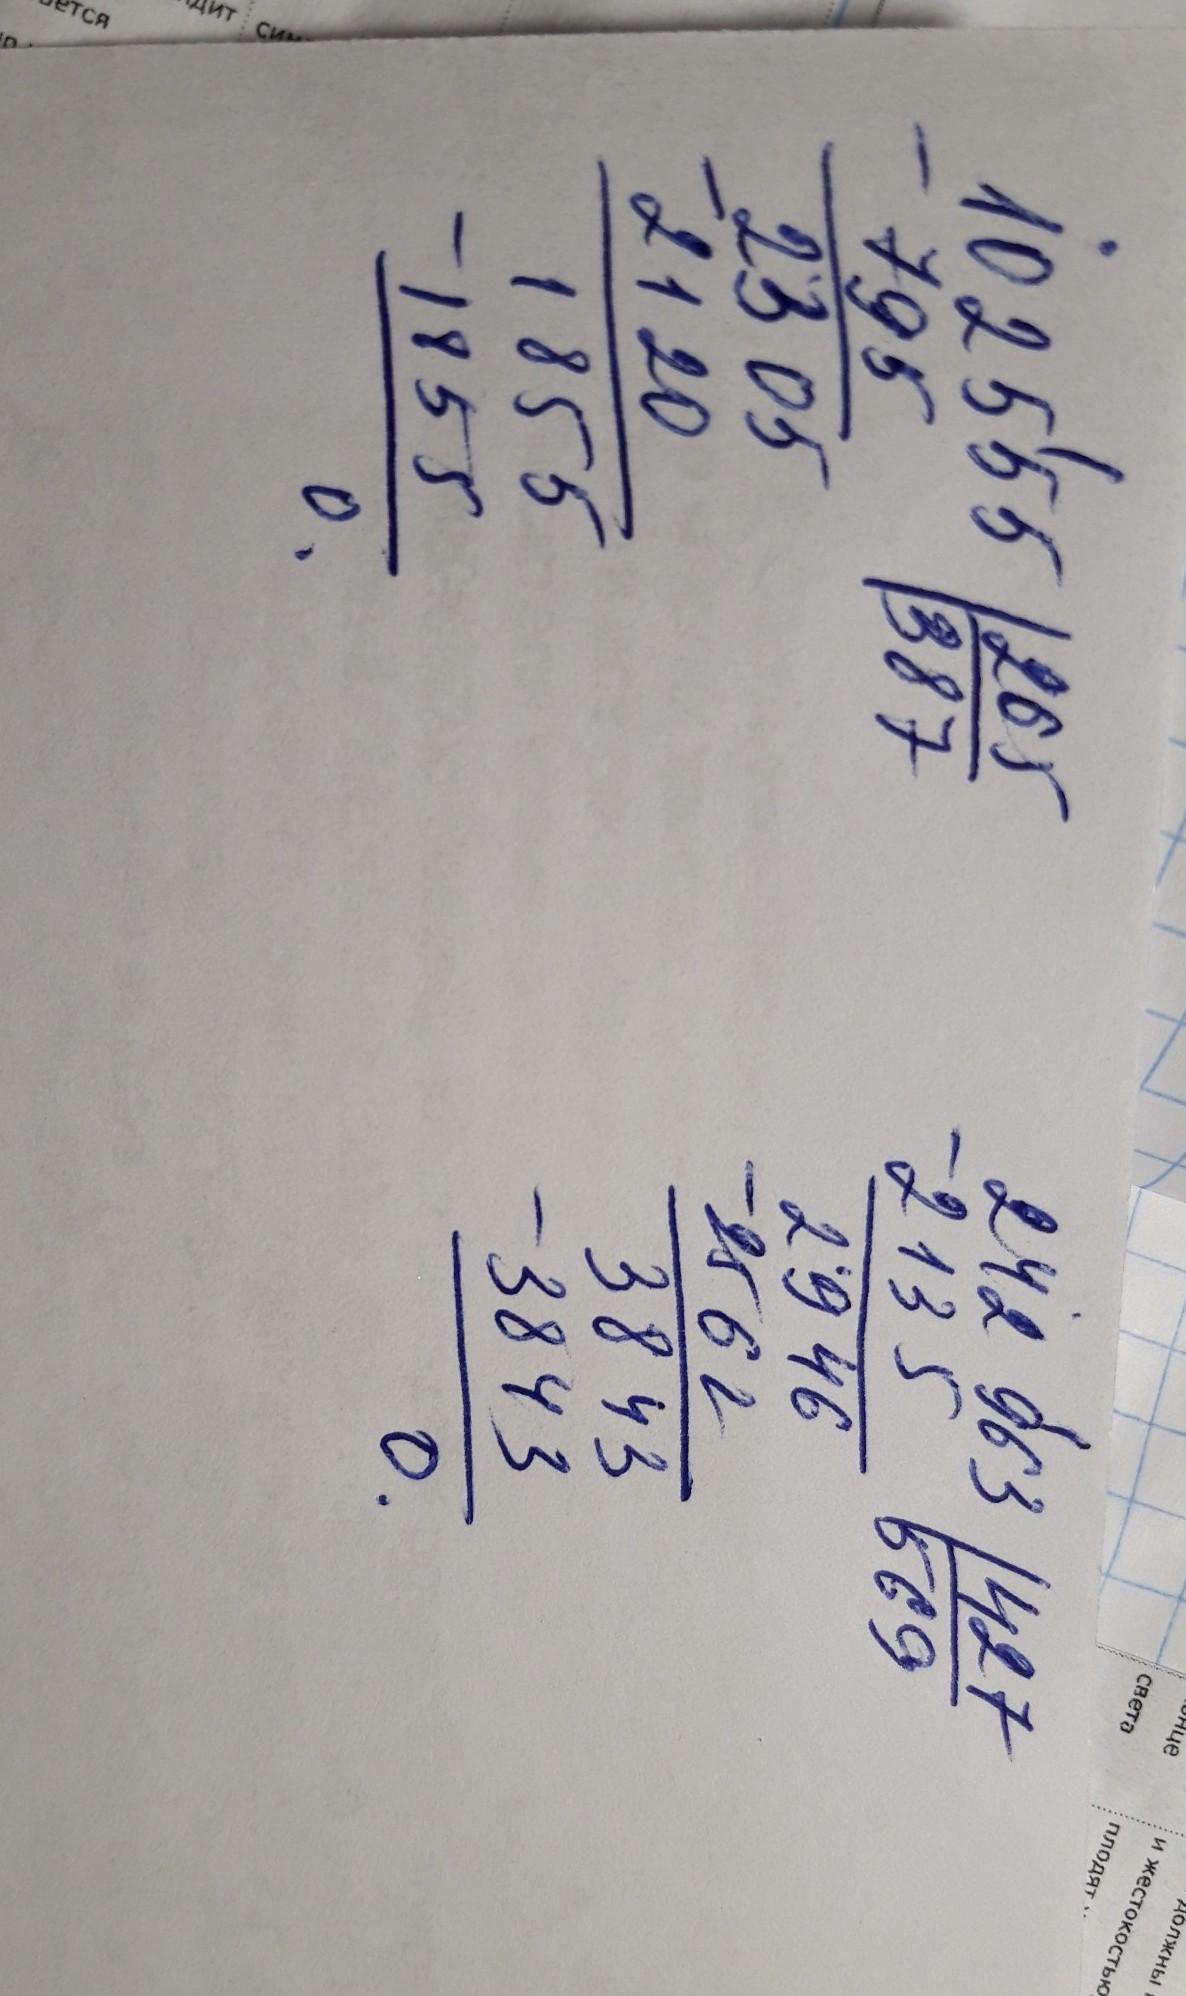 102555 |265
- 795 387
2305
- 2120
1855
- 1855
0.
242963 |427
- 2135 569
2946
- 2562
3843
- 3843
0.
дит
света
и жестокостью
должны
плодят